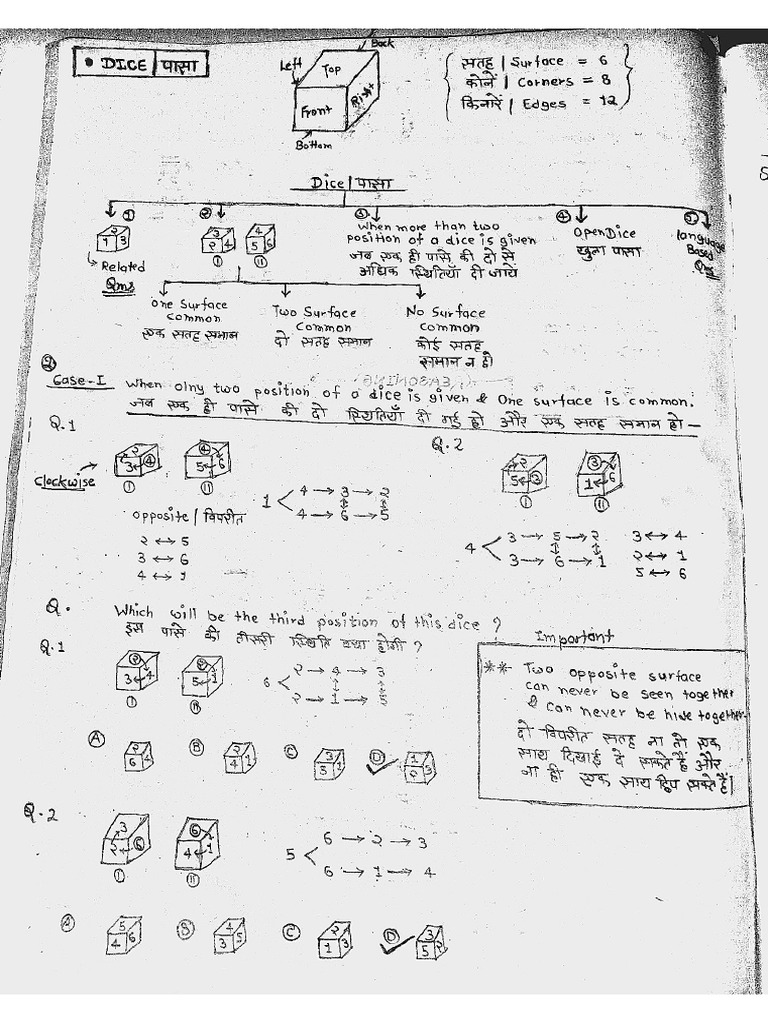 • DICE | पासा
Back
Left
Top
Front
Right
Bottom
सतह | Surface = 6
कोनें | Corners = 8
किनारें | Edges = 12
Dice | पासा
①
②
③
④
2
1 3
3
2 4
4
5 6
Ⓘ
Ⅱ
Related
Qns
When more than two
position of a dice is given
जब एक ही पासे की दो से
अधिक स्थितियाँ दी जायें
OpenDice
खुला पासा
language
Based
Qns
One Surface
Common
एक सतह समान
Two Surface
Common
दो सतह समान
No Surface
Common
कोई सतह
समान न हो
②
Case-I When olny two position of a dice is given & One surface is common.
जब एक ही पासे की दो स्थितियाँ दी गई हो और एक सतह समान हो –
Q.1
Clockwise
2
3 4
Ⓘ
4
5 6
Ⅱ
1 < 4 → 3 → 2
4 → 6 → 5
Opposite | विपरीत
2 ↔ 5
3 ↔ 6
4 ↔ 1
Q.2
2
5 3
Ⓘ
3
1 6
Ⅱ
4 < 3 → 5 → 2
3 → 6 → 1
3 ↔ 4
2 ↔ 1
5 ↔ 6
Q. Which will be the third position of this dice ?
इस पासे की तीसरी स्थिति क्या होगी ?
Q.1
2
3 4
Ⓘ
2
5 1
Ⅱ
6 < 2 → 4 → 3
2 → 1 → 5
Important
** Two opposite surface
can never be seen together
& can never be hide together.
दो विपरीत सतह ना तो एक
साथ दिखाई दे सकते हैं और
ना ही एक साथ छिप सकते हैं|
Ⓐ
2
6 4
Ⓑ
2
4 1
Ⓒ
3
5 1
Ⓓ
1
2 3
Q.2
3
2 6
Ⓘ
6
4 1
Ⅱ
5 < 6 → 2 → 3
6 → 1 → 4
Ⓐ
5
4 6
Ⓑ
4
3 5
Ⓒ
2
1 3
Ⓓ
3
5 2